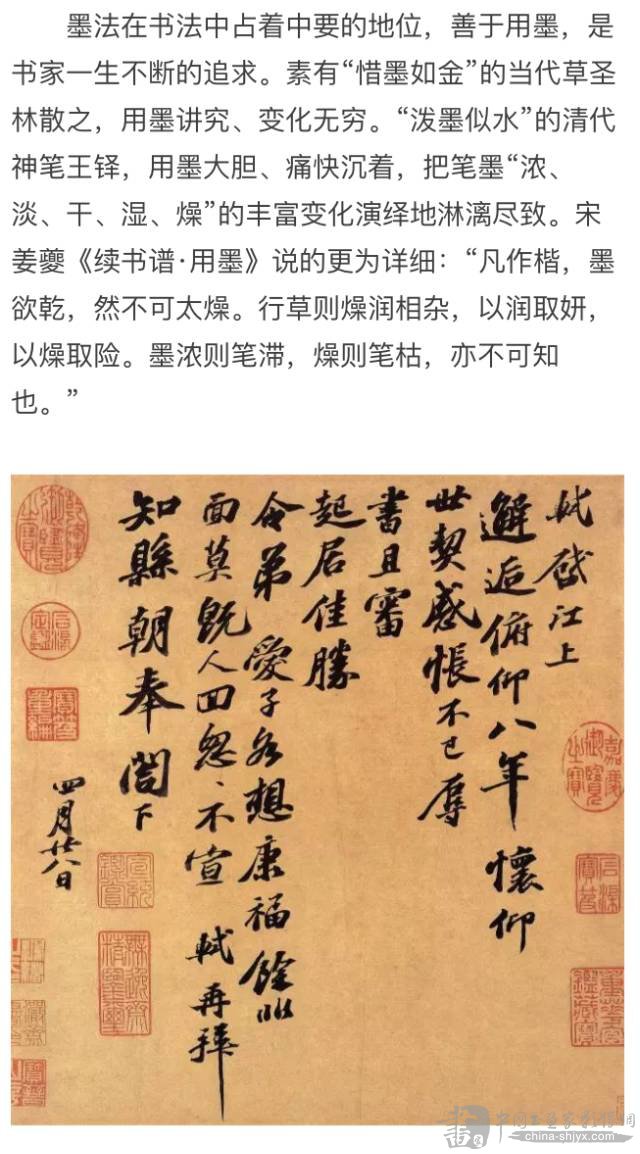 墨法在书法中占着中要的地位，善于用墨，是
书家一生不断的追求。素有“惜墨如金”的当代草圣
林散之，用墨讲究、变化无穷。“泼墨似水”的清代
神笔王铎，用墨大胆、痛快沉着，把笔墨“浓、
淡、干、湿、燥”的丰富变化演绎地淋漓尽致。宋
姜夔《续书谱·用墨》说的更为详细：“凡作楷，墨
欲乾，然不可太燥。行草则燥润相杂，以润取妍，
以燥取险。墨浓则笔滞，燥则笔枯，亦不可知
也。”
軾啓江上
邂逅俯仰八年懷仰
世契感悵不已辱
書且審
起居佳勝
令弟愛子各想康福餘非
面莫既人回怱、不宣 軾再拜
知縣朝奉閤下
四月廿八日
嘉慶御覽之寶
石渠寶笈
宣統鑒賞
無逸齋精鑒璽
乾隆御覽之寶
石渠定鑑
寶笈重編
china-shjyx.com